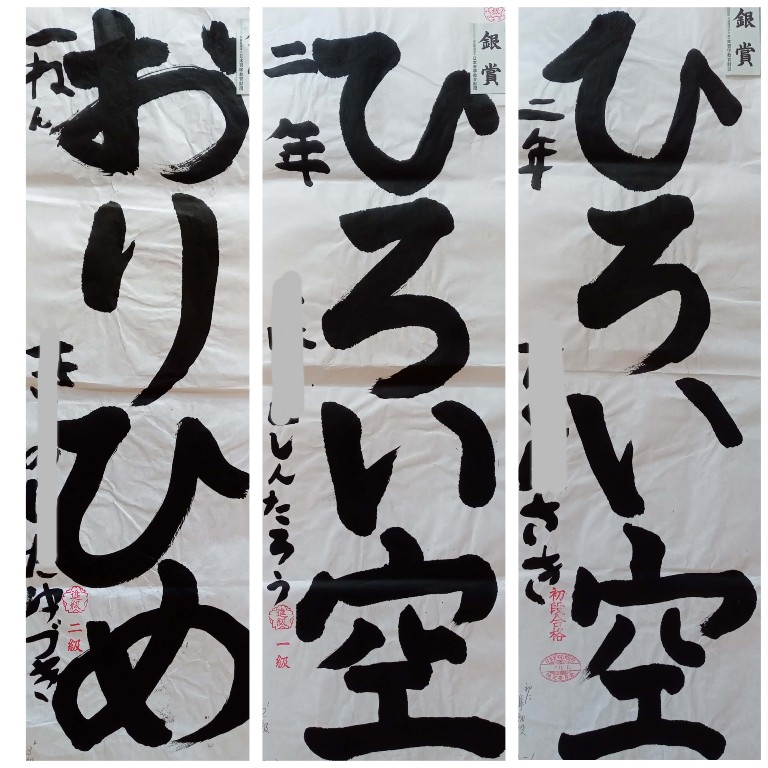 おりひめ
一ねん
ゆづき
進級
二級
ひろい空
二年
しんたろう
銀賞
進級
一級
ひろい空
二年
さき
銀賞
初段合格